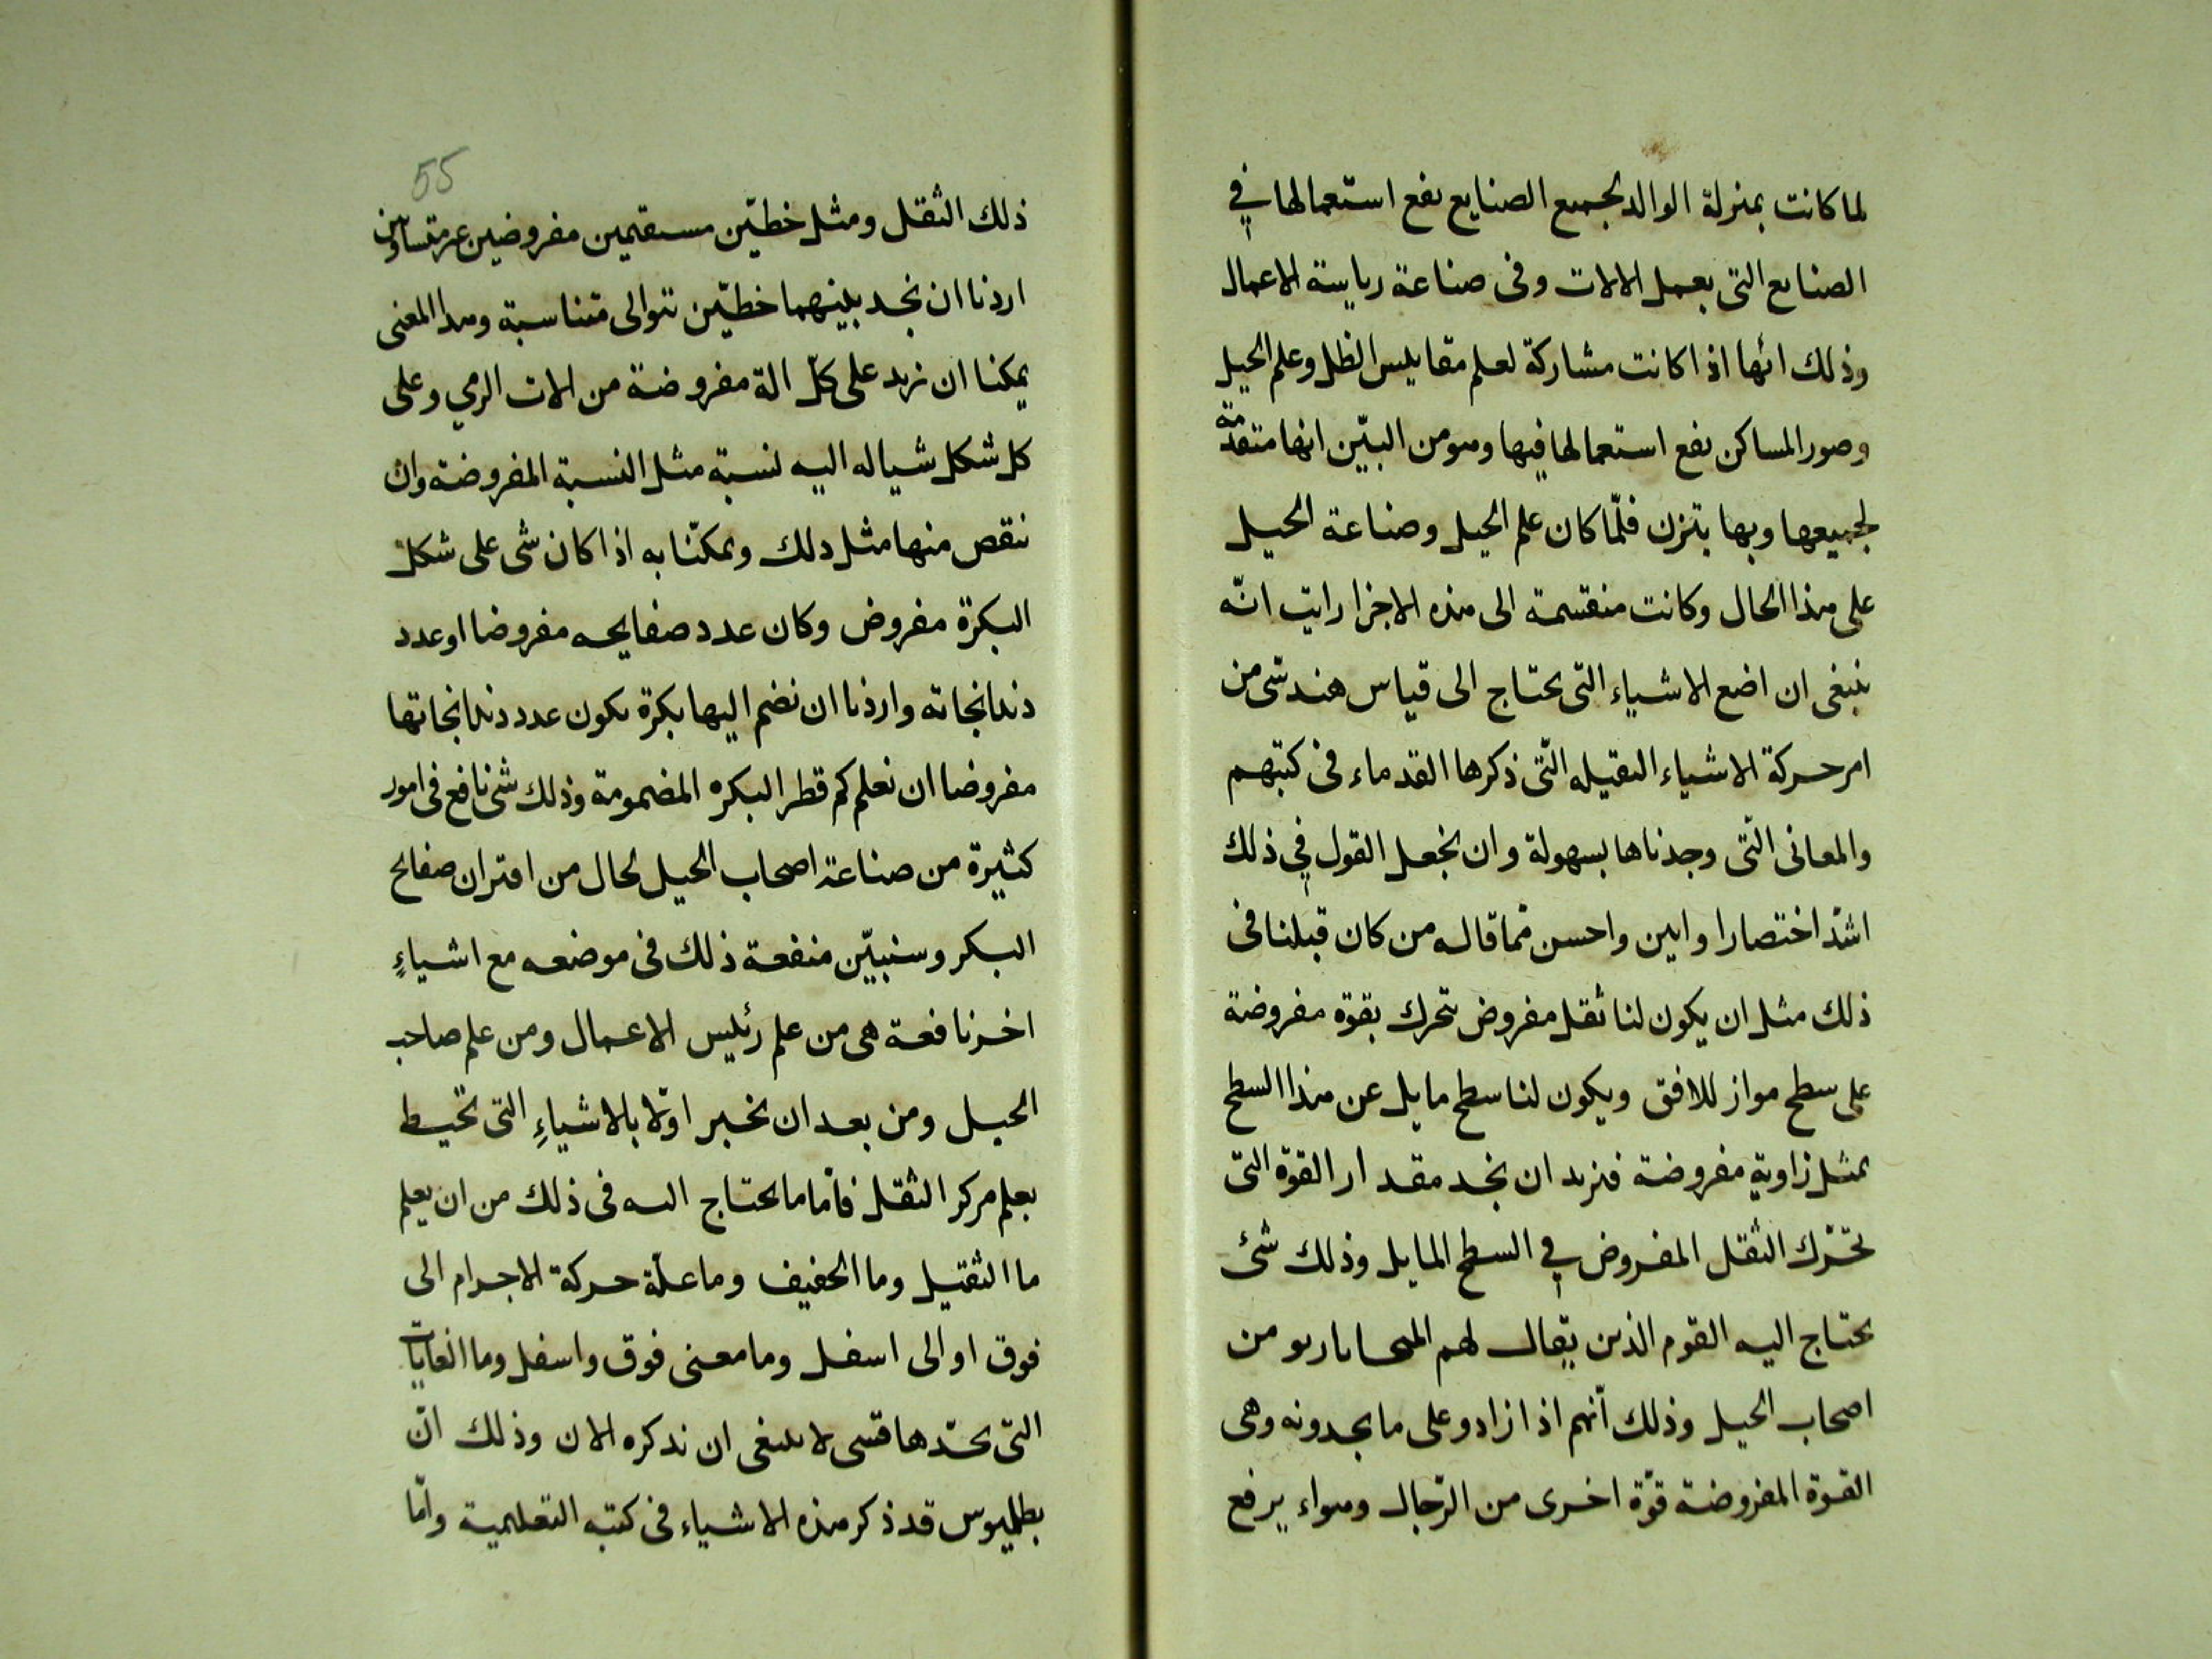 لما كانت بمنزلة الوالد لجميع الصنايع يقع استعمالها في
الصنايع التى بعمل الالات وفى صناعة رياسة الاعمال
وذلك انها اذا كانت مشاركة لعلم مقاييس الظل وعلم الحيل
وصور المساكن يقع استعمالها فيها وهو من البيّن انها متقدّمة
لجميعها وبها يتزن فلمّا كان علم الحيل وصناعة الحيل
على هذا الحال وكانت منقسمة الى هذه الاجزا رايت انّه
ينبغى ان اضع الاشياء التى يحتاج الى قياس هندسى من
امر حركة الاشياء الثقيله التّى ذكرها القدماء فى كتبهم
والمعانى التّى وجدناها بسهولة وان نجعل القول في ذلك
اشدّ اختصارا وابين واحسن ممّا قاله من كان قبلنا فى
ذلك مثل ان يكون لنا ثقل مفروض يتحرك بقوة مفروضة
على سطح مواز للافق ويكون لنا سطح مايل عن هذا السطح
بمثل زاوية مفروضة فنريد ان نجد مقدار القوّة التى
تحرّك الثقل المفروض في السطح المايل وذلك شئ
يحتاج اليه القوم الذين يقال لهم من
اصحاب الحيل وذلك أنهم اذا زادو على ما يجدونه وهى
القوة المفروضة قوّة اخرى من الرّجال وسواء يرفع
55
ذلك الثقل ومثل خطيّن مستقيمين مفروضين غير متساوين
اردنا ان نجد بينهما خطيّن تتوالى متناسبة وبهذا المعنى
يمكننا ان نزيد على كلّ الة مفروضة من الات الرمي وعلى
كل شكل شيا له اليه نسبة مثل النسبة المفروضة وان
ننقص منها مثل ذلك ويمكنّا به اذا كان شى على شكل
البكرة مفروض وكان عدد صفايحه مفروضا او عدد
دندانجاته واردنا ان نضم اليها بكرة يكون عدد دندانجاتها
مفروضا ان نعلم كم قطر البكره المضمومة وذلك شى نافع فى امور
كثيرة من صناعة اصحاب الحيل لحال من اقتران صفايح
البكر وسنبيّن منفعة ذلك فى موضعه مع اشياءٍ
اخر نافعة هى من علم رئيس الاعمال ومن علم صاحب
الحيل ومن بعد ان نخبر اوّلا بالاشياءِ التى تحيط
بعلم مركز الثقل فأما ما يحتاج اليه فى ذلك من ان يعلم
ما الثقيل وما الخفيف وما علّة حركة الاجرام الى
فوق او الى اسفل وما معنى فوق واسفل وما الغايات
التى تحدّها لا ينبغى ان نذكره الان وذلك انّ
بطلميوس قد ذكر هذه الاشياء فى كتبه التعليمية وامّا